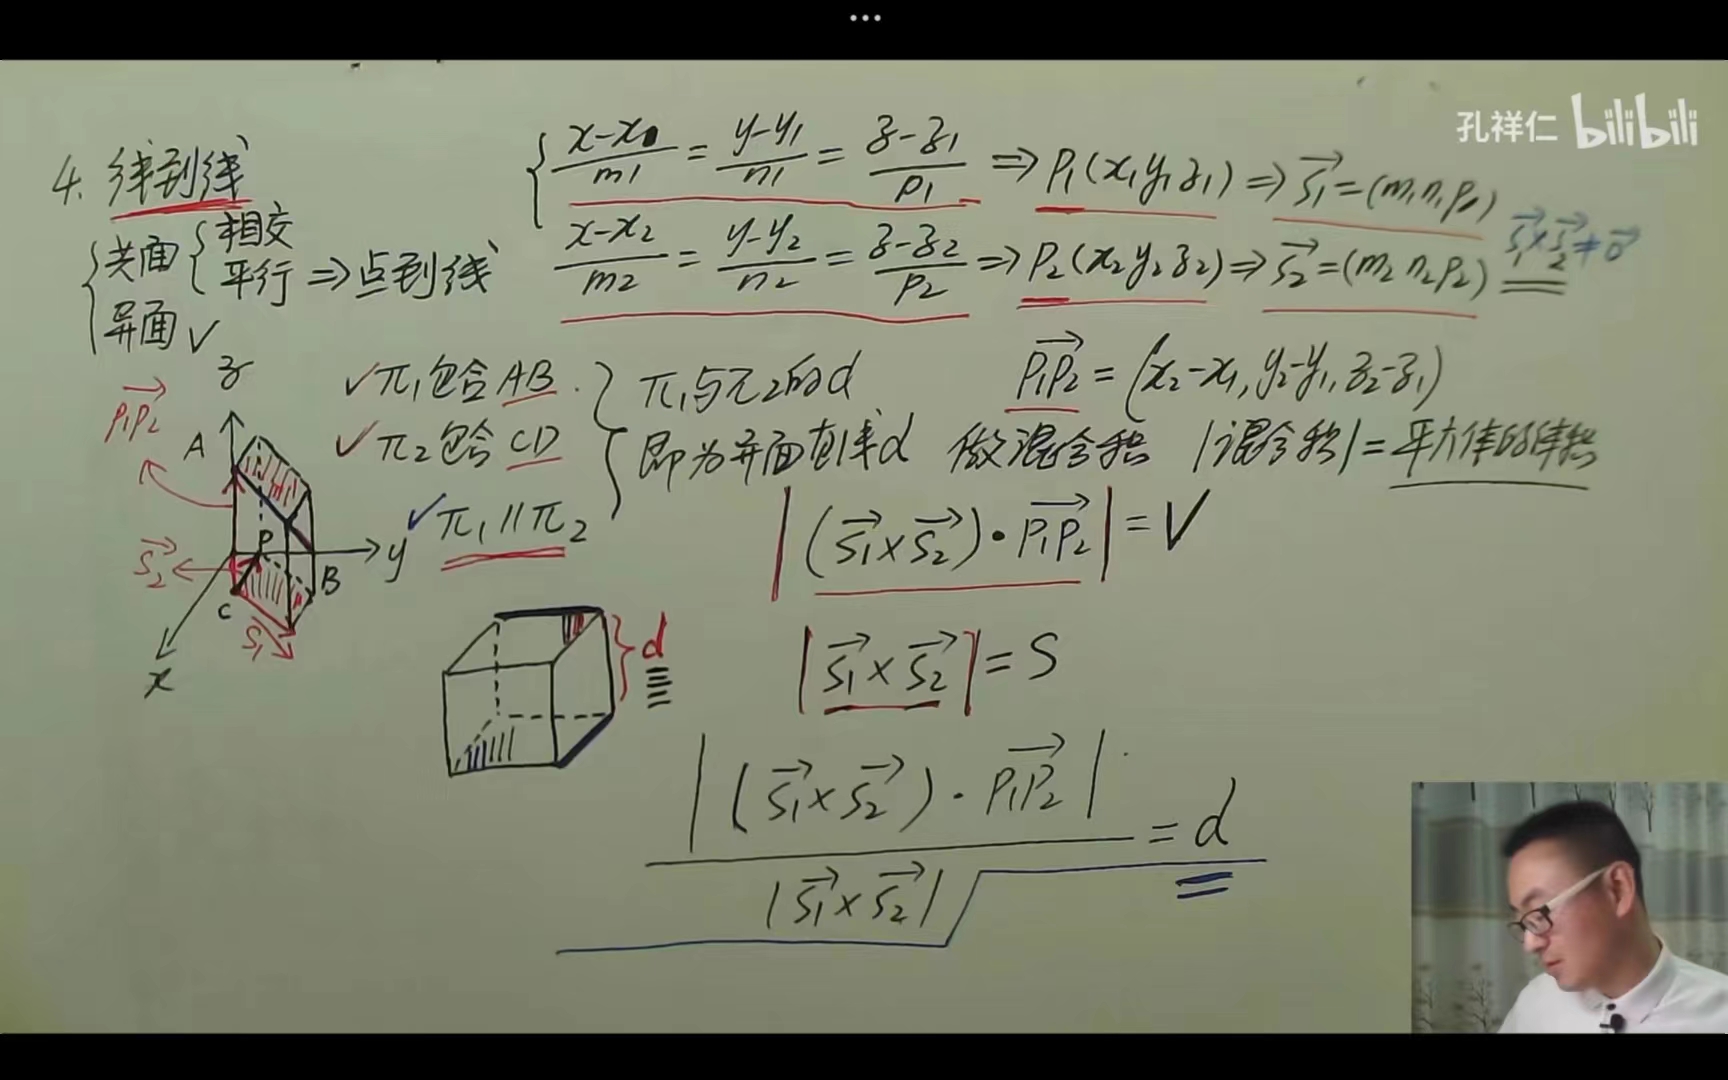 ...
孔祥仁 bilibili
4. 线到线
{ 共面 { 相交
平行 ⇒ 点到线
异面 ✓
{ (x-x₁)/m₁ = (y-y₁)/n₁ = (z-z₁)/p₁ ⇒ P₁(x₁y₁z₁) ⇒ s₁→ = (m₁n₁p₁)
(x-x₂)/m₂ = (y-y₂)/n₂ = (z-z₂)/p₂ ⇒ P₂(x₂y₂z₂) ⇒ s₂→ = (m₂n₂p₂) s₁→×s₂→≠0→
P₁P₂→ = (x₂-x₁, y₂-y₁, z₂-z₁)
✓π₁包含AB.
✓π₂包含CD
✓π₁∥π₂
} π₁与π₂的d
即为异面直线d 做混合积 |混合积|=平六体的体积
|(s₁→×s₂→)·P₁P₂→| = V
|s₁→×s₂→| = S
|(s₁→×s₂→)·P₁P₂→| / |s₁→×s₂→| = d
P₁P₂→
z
A
P
y
s₂→
B
C
s₁→
x
d